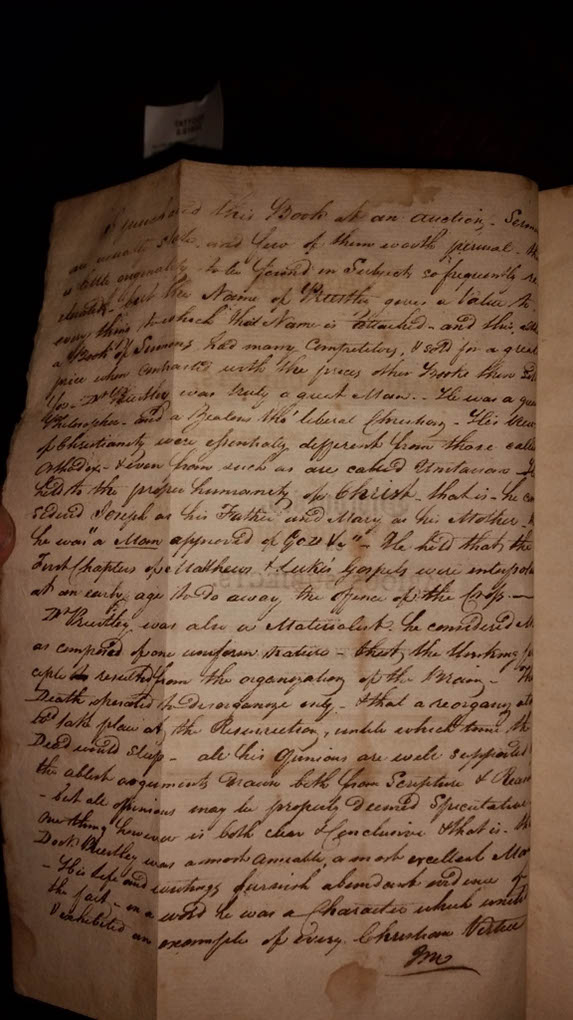 I purchased this Book at an auction, Sermo
an usual state and few of them worth perusal - the
is little originality to be found in Subjects so frequently re
- but the Name of Priestley gives a Value to
every thing to which that Name is attached - and this, altho
a Book of Sermons had many Competitors, & sold for a great
price when contracted with the prices other Books then sold
for - Dr Priestley was truly a great Man. - He was a great
Philosopher - and a Zealous tho' liberal Christian - His Views
of Christianity were essentially different from those called
Orthodox - & even from such as are called Unitarian - He
held to the proper humanity of Christ - that is - he con
sidered Joseph as his Father and Mary as his Mother -
he was "a Man approved of God &c" - He held that the
First Chapters of Mathews & Luke's Gospels were interpola
at an early age to do away the offence of the Cross. -
Dr Priestley was also a Materialist he considered M
as composed of one uniform Nature - that the thinking prin
ciple resulted from the organization of the Brain - The
Death operated to disorganize only - & that a reorganizatio
to take place at the Resurrection, until which time the
Dead would Sleep - all his Opinions are well supported
the ablest arguments drawn both from Scripture & Reason
- but all opinions may be properly deemed Speculative
One thing however is both clear & Conclusive & that is - the
Doctr Priestley was a most amiable, a most excellent Man
- His life and writings furnish abundant evidence of
the fact - in a word he was a Character which united
& exhibited an example of every Christian Virtue